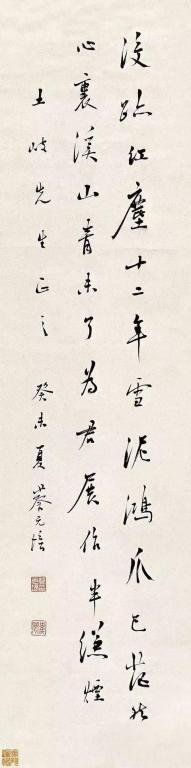 跡紅塵十二年雪泥鴻爪已茫然
心裏溪山青未了為君展作半縑煙
岐先生正之 癸未夏 蔡元培